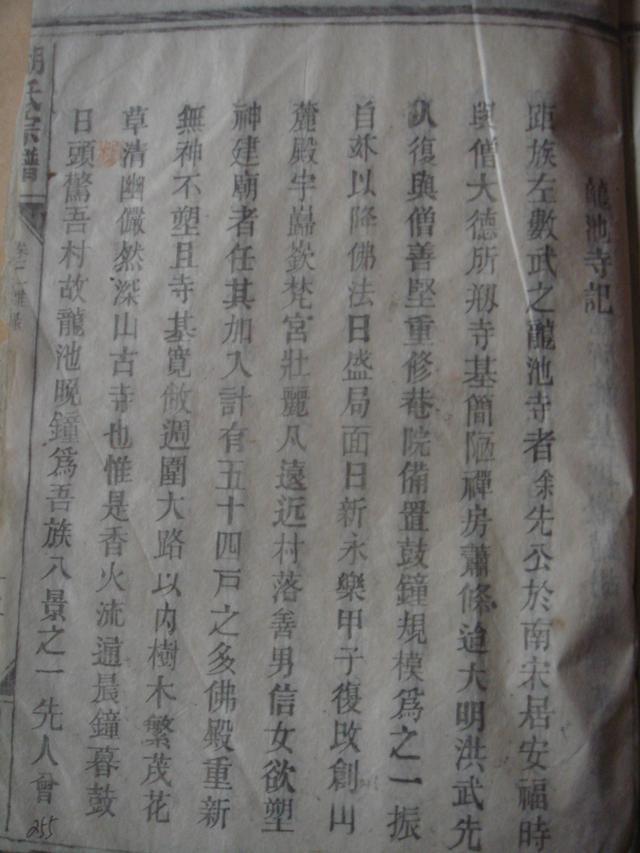 龍池寺記
距族左數武之龍池寺者余先公於南宋居安福時
與僧大德所刱寺基簡陋禪房蕭條迨大明洪武先
人復與僧善堅重修菴院備置鼓鐘規模爲之一振
自玆以降佛法日盛局面日新永樂甲子復改創山
麓殿宇巋嶔梵宮壯麗凡遠近村落善男信女欲塑
神建廟者任其加入計有五十四戸之多佛殿重新
無神不塑且寺基寛敞週圍大路以内樹木繁茂花
草清幽儼然深山古寺也惟是香火流通晨鐘暮鼓
日頭驚吾村故龍池晚鐘爲吾族八景之一先人曾
胡氏宗譜
卷二
255